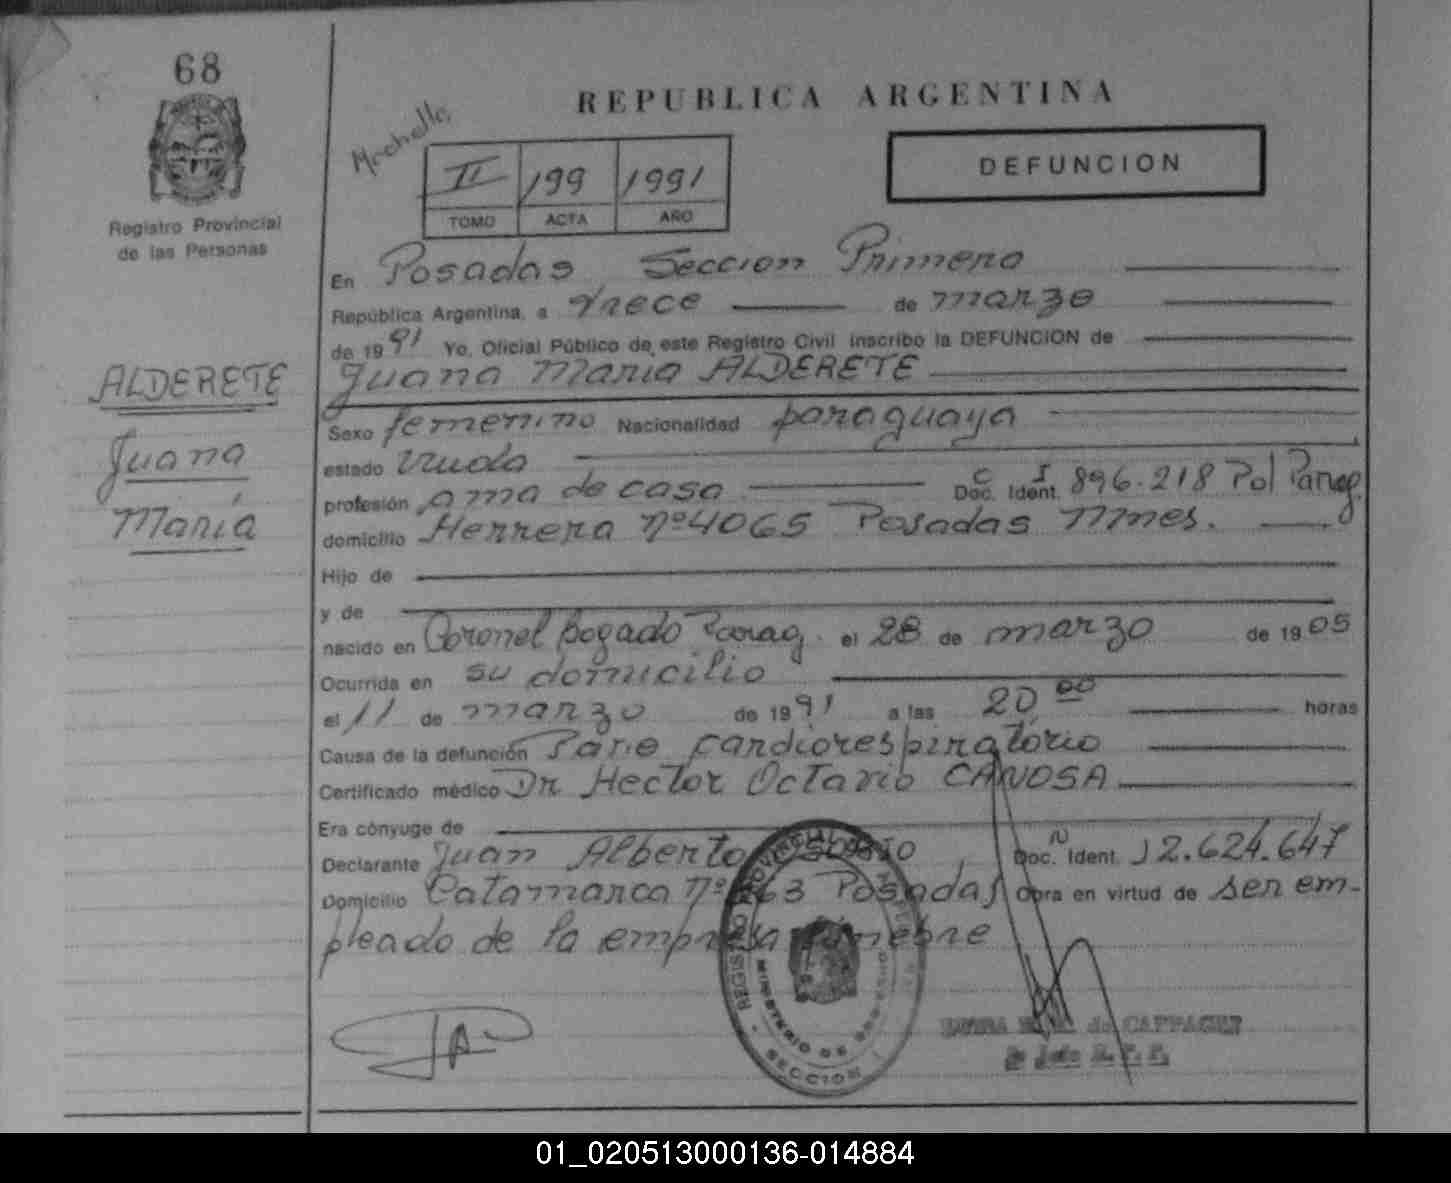 68
REPUBLICA ARGENTINA
II 199 1991
TOMO ACTA AÑO
DEFUNCION
Registro Provincial
de las Personas
ALDERETE
Juana
María
En Posadas Seccion Primera
República Argentina, a trece de marzo
de 1991 Yo, Oficial Público de este Registro Civil inscribo la DEFUNCION de
Juana Maria ALDERETE
Sexo femenino Nacionalidad paraguaya
estado viuda
profesión ama de casa Doc. Ident. C I 896.218 Pol Parag.
domicilio Herrera Nº 4065 Posadas Mnes.
Hijo de
y de
nacido en Coronel Bogado Parag. el 28 de marzo de 1905
Ocurrida en su domicilio
el 11 de marzo de 1991 a las 20 00 horas
Causa de la defunción Paro cardiorespiratorio
Certificado médico Dr Hector Octavio CANOSA
Era cónyuge de
Declarante Juan Alberto Doc. Ident. 12.624.647
Domicilio Catamarca Nº 63 Posadas Obra en virtud de ser em-
pleado de la empresa funebre
REGISTRO PROVINCIAL DE LAS
MINISTERIO DE GOBIERNO
SECCION
de CAPPAGLI
01_020513000136-014884